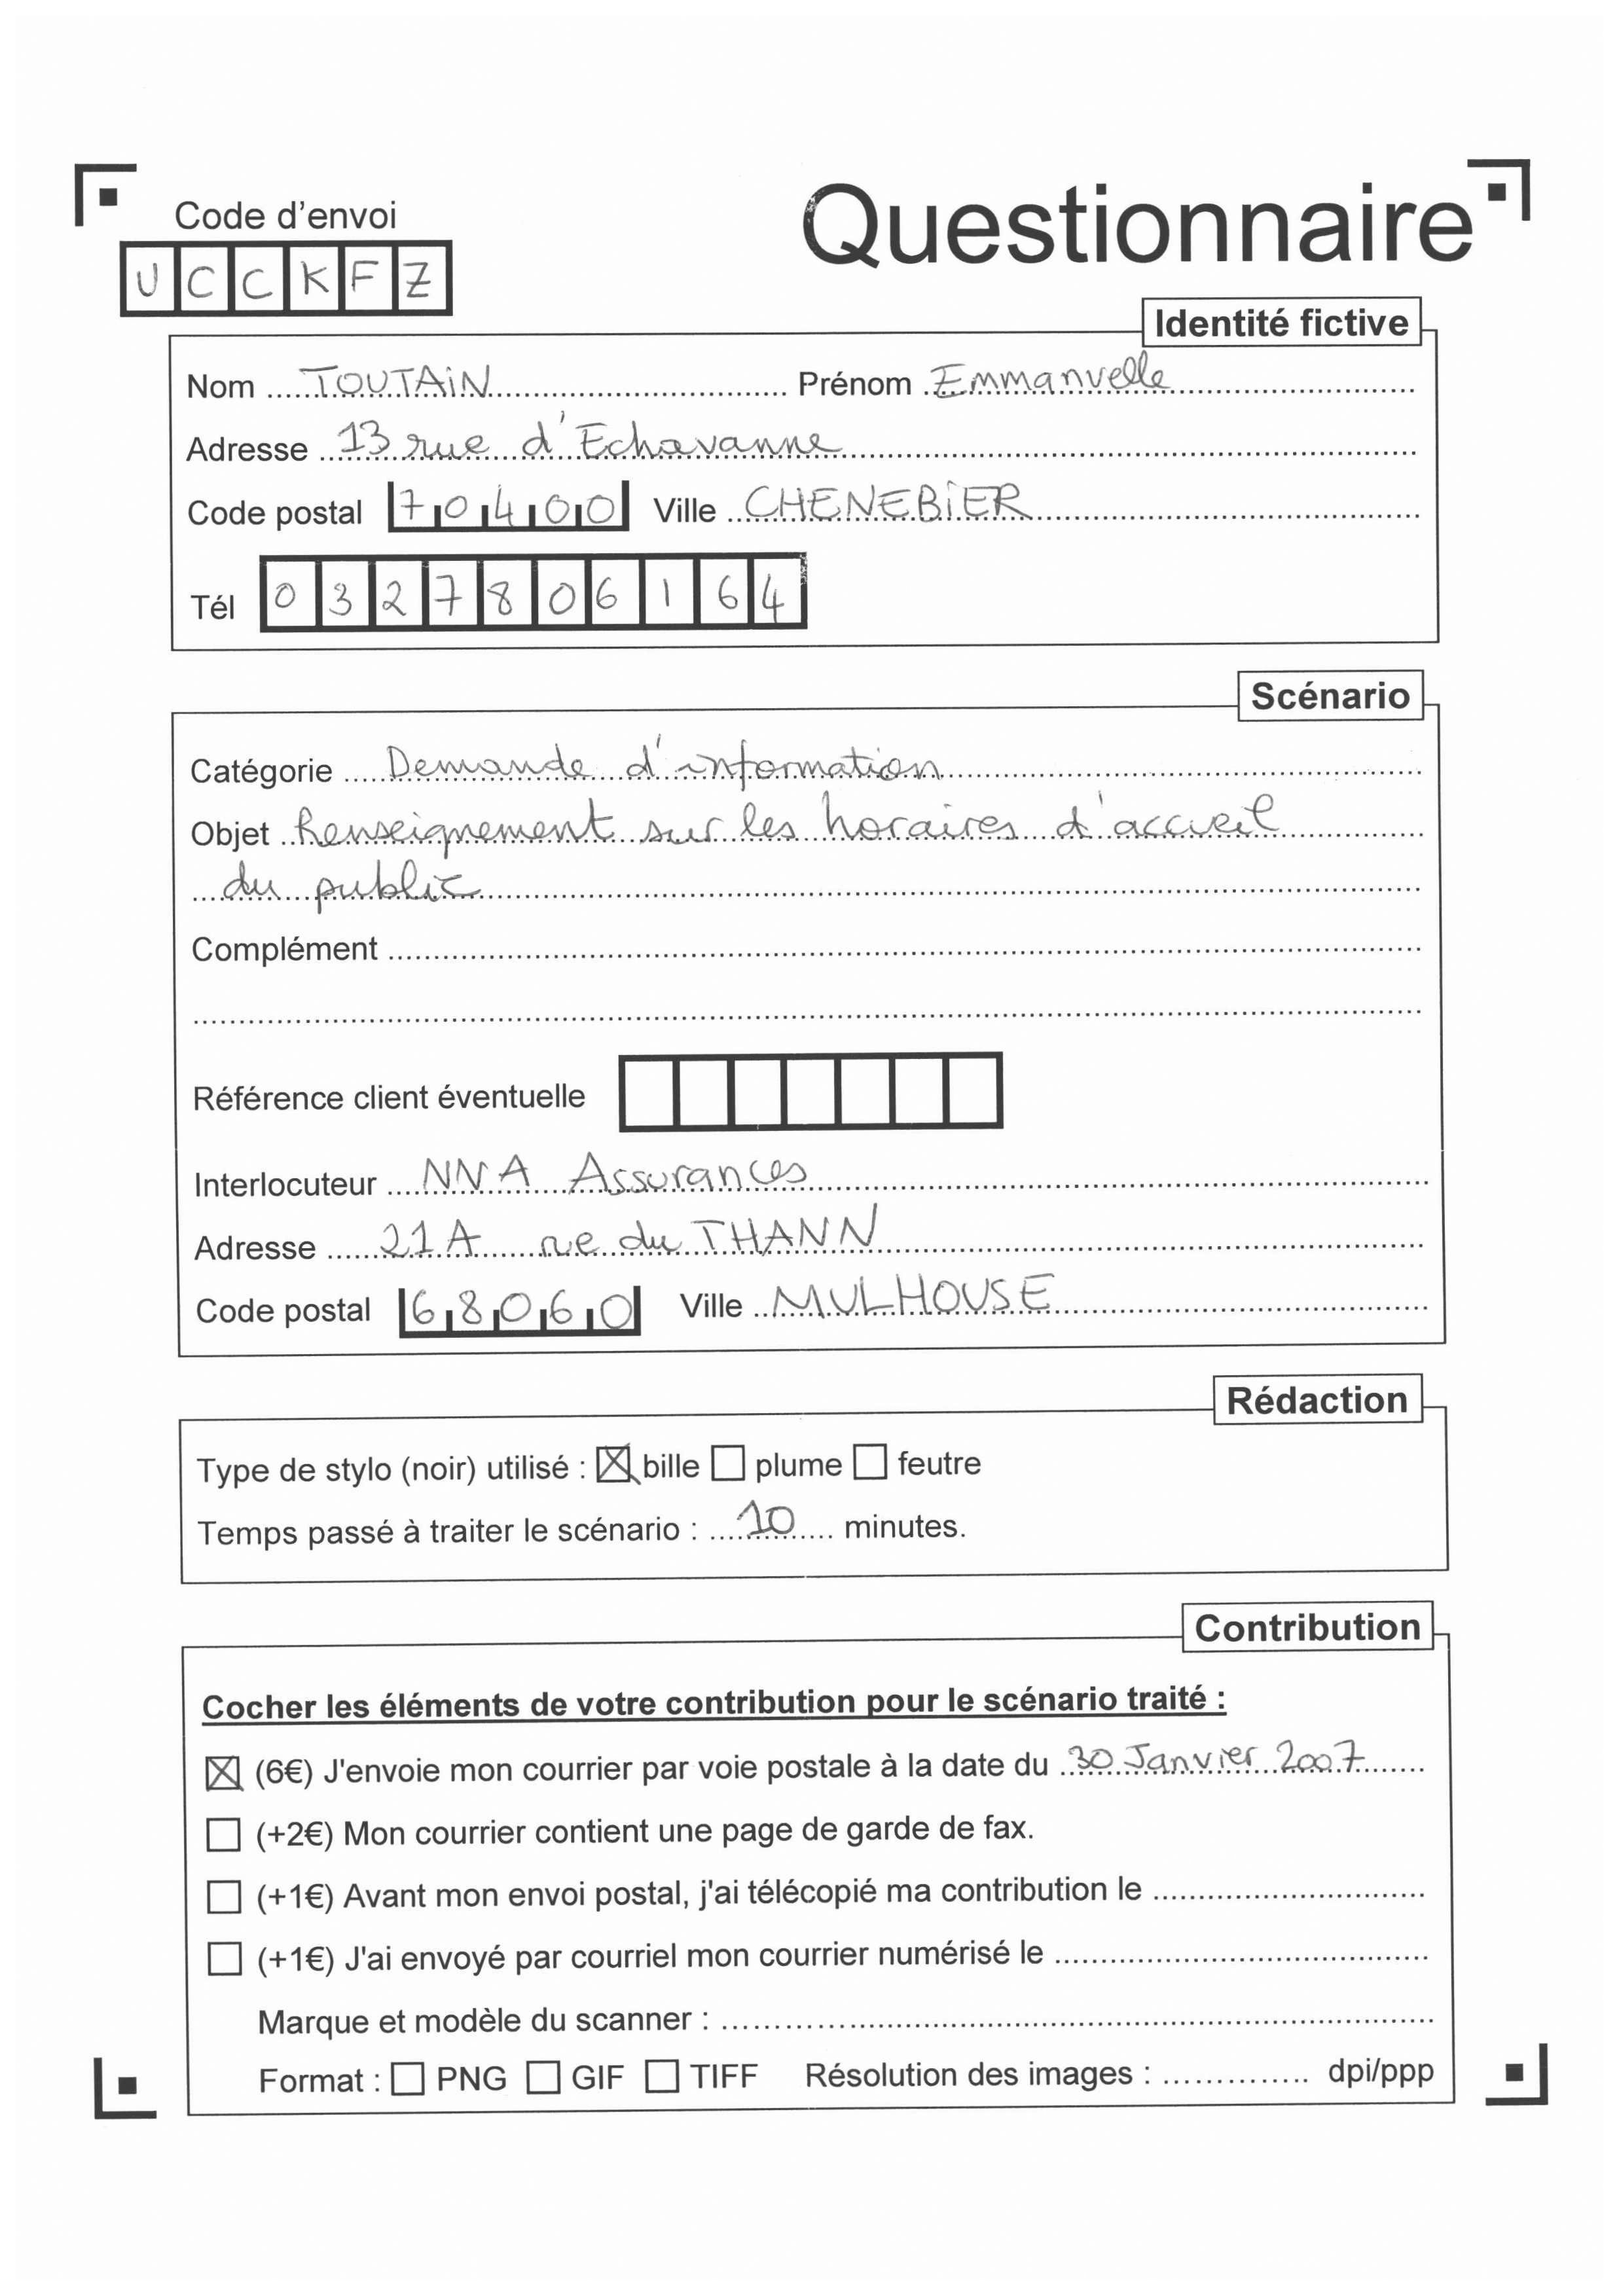 Code d'envoi
Questionnaire
U C C K F Z
Identité fictive
Nom TOUTAIN Prénom Emmanuelle
Adresse 13 rue d'Echavanne
Code postal 70400 Ville CHENEBIER
Tél 0327806164
Scénario
Catégorie Demande d'information
Objet Renseignement sur les horaires d'accueil
du public
Complément
Référence client éventuelle
Interlocuteur NNA Assurances
Adresse 21A rue du THANN
Code postal 68060 Ville MULHOUSE
Rédaction
Type de stylo (noir) utilisé : ☒ bille ☐ plume ☐ feutre
Temps passé à traiter le scénario : 10 minutes.
Contribution
Cocher les éléments de votre contribution pour le scénario traité :
☒ (6€) J'envoie mon courrier par voie postale à la date du 30 Janvier 2007
☐ (+2€) Mon courrier contient une page de garde de fax.
☐ (+1€) Avant mon envoi postal, j'ai télécopié ma contribution le
☐ (+1€) J'ai envoyé par courriel mon courrier numérisé le
Marque et modèle du scanner :
Format : ☐ PNG ☐ GIF ☐ TIFF Résolution des images : dpi/ppp